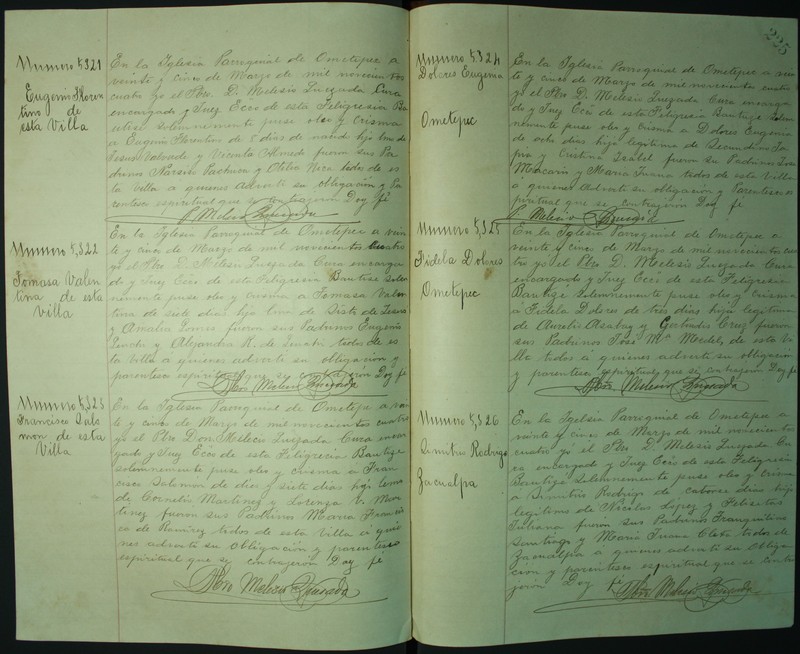 Numero 5,321
Eugenio Floren
tino de
esta Villa
En la Iglesia Parroquial de Ometepec a
veinte y cinco de Marzo de mil novecientos
cuatro yo el Pbro. D. Melesio Quezada Cura
encargado y Juez Ecco de esta Feligresia Ba
utice solemnemente puse oleo y Crisma
a Eugenio Florentino de 8 dias de nacido hijo
fueron sus Pa
drinos Narciso Pacheco y Otilia todos de es
ta Villa a quienes adverti su obligación y Pa
rentesco espiritual que se contrajeron Doy fé
P. Melesio Quezada
Numero 5,322
Tomasa Valen
tina de esta
Villa
En la Iglesia Parroquial de Ometepec a vein
te y cinco de Marzo de mil novecientos cuatro
yo el Pbro. D. Melesio Quezada Cura encarga
do y Juez Ecco de esta Feligresia Bautise Sole
nemente puse oleo y crisma a Tomasa Valen
tina de siete dias hija de Sista de Jesus
y Amalia Gomes fueron sus Padrinos Eugenio
y Alejandra R. de todos de es
ta Villa a quienes adverti su obligación y
parentesco espiritual que se contrajerón Doy fé
Pbro Melesio Quezada
Numero 5,323
Francisco Salo
mon de esta
Villa
En la Iglesia Parroquial de Ometepec a vein
te y cinco de Marzo de mil novecientos cuatro
yo el Pbro Don Melecio Quezada Cura encar
gado y Juez Ecco de esta Feligrecia Bautize
solemnemente puse oleo y crisma a Fran
cisco Salomón de diez y siete dias hijo
de Cornelio Martinez y Lorenza V. Mar
tinez fueron sus Padrinos Maria Francis
ca de Ramirez todos de esta Villa á quie
nes adverti su Obligación y parentesco
espiritual que se contrajeron Doy fé
Pbro Melesio Quezada
225
Numero 5,324
Dolores Eugenia
Ometepec
En la Iglesia Parroquial de Ometepec a vein
te y cinco de Marzo de mil novecientos cuatro
yo el Pbro D. Melesio Quezada Cura encarga
do y Juez Ecó de esta Feligresia Bautize Solem
nemente puse oleo y Crisma a Dolores Eugenia
de ocho dias hija legitima de Secundino
y Cristina Isabel fueron su Padrinos José
Macario y Maria Juana todos de esta Villa
á quienes Adverti su obligación y Parentesco es
piritual que se contrajeron Doy fé
P. Melesio Quezada
Numero 5,325
Fidela Dolores
Ometepec
En la Iglesia Parroquial de Ometepec a
veinte y cinco de Marzo de mil novecientos cua
tro yo el Pbro D. Melesio Quezada Cura
encargado y Juez Ecó de esta Feligresia
Bautizé Solemnemente puse oleo y Crisma
a Fidela Dolores de tres dias hija legitima
de Aurelio y Gertrudis Cruz fueron
sus Padrinos José Ma Mendez de esta Vi
lla todos á quienes adverti su obligación
y parentesco espiritual que se contrajeron Doy fé
Pbro Melesio Quezada
Numero 5,326
Dimitrio Rodrigo
Zacualpa
En la Iglesia Parroquial de Ometepec a
veinte y cinco de Marzo de mil novecientos
cuatro yo el Pbro D. Melesio Quezada Cu
ra encargado y Juez Ecó de esta Feligresia
Bautize Solemnemente puse oleo y Crisma
a Dimitrio Rodrigo de catorce dias hijo
legitimo de Nicolas Lopez y Felicitas
Juliana fueron sus Padrinos Tranquilino
Santiago y Maria Juana Cleta todos de
Zacualpa á quienes adverti su Obliga
cion y parentesco espiritual que se contra
jeron Doy fé
Pbro Melesio Quezada